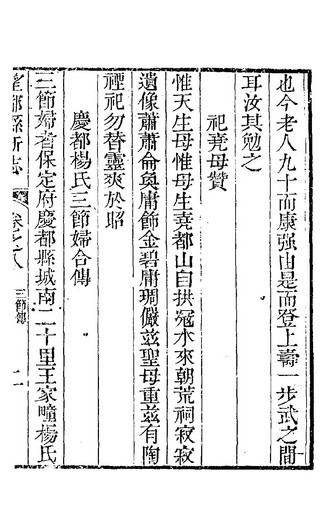 也今老人九十而康强由是而登上壽一步武之間
耳汝其勉之
祀堯母贊
惟天生母惟母生堯都山自拱㓂水來朝荒祠寂寂
遺像蕭蕭侖奐庸飾金碧庸琱儼茲聖母重茲有陶
禋祀勿替靈爽於昭
慶都楊氏三節婦合傳
三節婦者保定府慶都縣城南二十里王家疃楊氏
望都縣新志
卷之八
三節傳
二